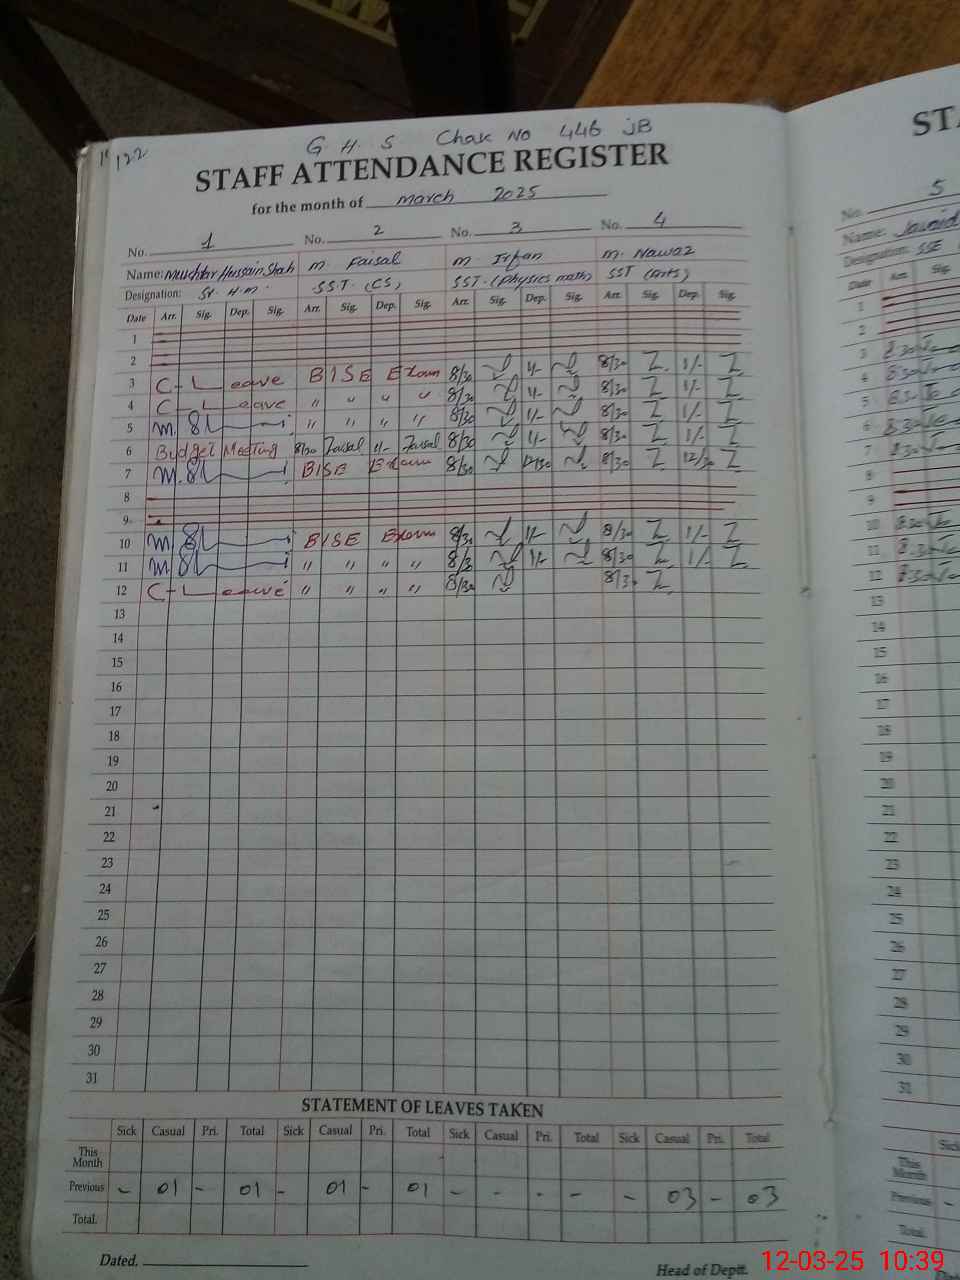 122
G H S Chak No 446 JB
STAFF ATTENDANCE REGISTER
for the month of march 2025
No. 1 No. 2 No. 3 No. 4
Name: Mukhtar Hussain Shah m. Faisal m. Irfan m. Nawaz
Designation: Sr. H.m. SST. (CS) SST. (Physics math) SST (Arts)
Date Arr. Sig. Dep. Sig. Arr. Sig. Dep. Sig. Arr. Sig. Dep. Sig. Arr. Sig. Dep. Sig.
1
2
3 C-Leave BISE Exam 8/30 1/- 8/30 1/-
4 C-Leave " " " " 8/30 1/- 8/30 1/-
5 " " " " 8/30 1/- 8/30 1/-
6 Budget Meeting 8/30 Faisal 1/- Faisal 8/30 1/- 8/30 1/-
7 BISE Exam 8/30 12/30 8/30 12/30
8
9
10 BISE Exam 8/30 1/- 8/30 1/-
11 " " " " 8/30 1/- 8/30 1/-
12 C-Leave " " " " 8/30 8/30
13
14
15
16
17
18
19
20
21
22
23
24
25
26
27
28
29
30
31
STATEMENT OF LEAVES TAKEN
Sick Casual Pri. Total Sick Casual Pri. Total Sick Casual Pri. Total Sick Casual Pri. Total
This Month
Previous - 01 - 01 - 01 - 01 - - - - - 03 - 03
Total.
Dated. Head of Deptt.
No. 5
Name: Javaid
Designation: SSE
Date Arr. Sig.
1
2
3 8.30
4 8.30
5 8.30
6 8.30
7 8.30
8
9
10 8.30
11 8.30
12 8.30
13
14
15
16
17
18
19
20
21
22
23
24
25
26
27
28
29
30
31
This Month
Previous
Total.
12-03-25 10:39